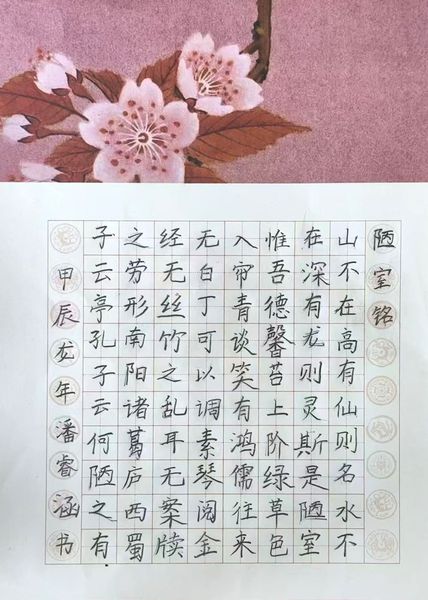 陋室铭
山不在高有仙则名水不
在深有龙则灵斯是陋室
惟吾德馨苔上阶绿草色
入帘青谈笑有鸿儒往来
无白丁可以调素琴阅金
经无丝竹之乱耳无案牍
之劳形南阳诸葛庐西蜀
子云亭孔子云何陋之有
甲辰龙年潘睿涵书